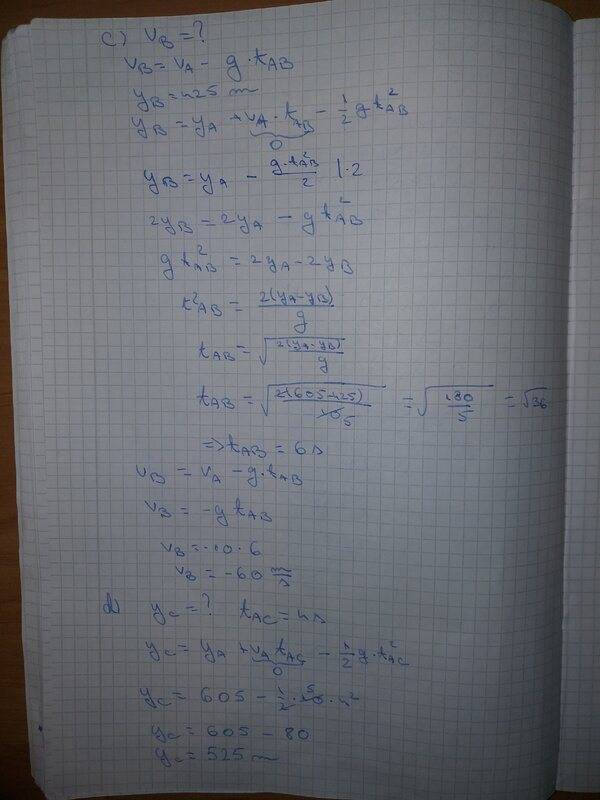 c) v_B = ?
v_B = v_A - g · t_AB
y_B = 425 m
y_B = y_A + v_A · t_AB - 1/2 g t_AB^2
0
y_B = y_A - g · t_AB^2 / 2 | · 2
2y_B = 2y_A - g t_AB^2
g t_AB^2 = 2y_A - 2y_B
t^2_AB = 2(y_A - y_B) / g
t_AB = √(2(y_A - y_B) / g)
t_AB = √(2(605-425) / 10 5) = √(180 / 5) = √36
=> t_AB = 6 s
v_B = v_A - g · t_AB
v_B = -g t_AB
v_B = -10 · 6
v_B = -60 m/s
d) y_C = ? t_AC = 4 s
y_C = y_A + v_A t_AC - 1/2 g · t_AC^2
0
y_C = 605 - 1/2 · 10 5 · 4^2
y_C = 605 - 80
y_C = 525 m